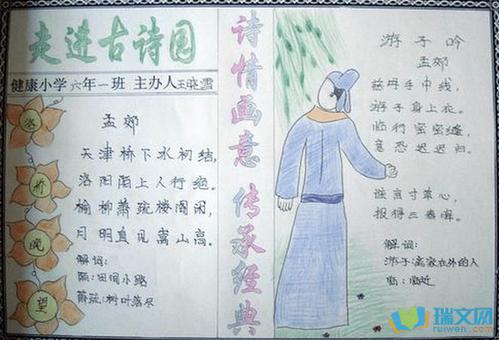 走进古诗园
健康小学六年一班 主办人王晓雪
洛
桥
晚
望
孟郊
天津桥下水初结,
洛阳陌上人行绝。
榆柳萧疏楼阁闲,
月明直见嵩山高。
解词:
陌:田间小路
萧疏:树叶落尽
诗情画意 传承经典
游子吟
孟郊
慈母手中线,
游子身上衣。
临行密密缝,
意恐迟迟归。
谁言寸草心,
报得三春晖。
解词:
游子:离家在外的人
临:临近
瑞文网
ruiwen.com